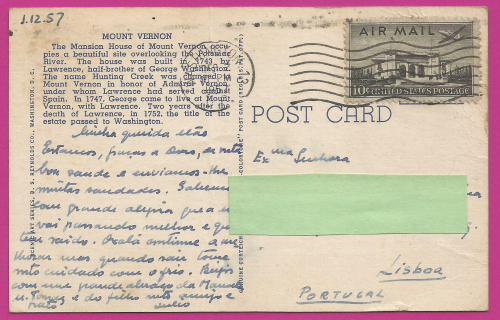 1.12.57
MOUNT VERNON
The Mansion House of Mount Vernon occu-
pies a beautiful site overlooking the Potomac
River. The house was built in 1743 by
Lawrence, half-brother of George Washington.
The name Hunting Creek was changed to
Mount Vernon in honor of Admiral Vernon,
under whom Lawrence had served against
Spain. In 1747, George came to live at Mount
Vernon, with Lawrence. Two years after the
death of Lawrence, in 1752, the title of the
estate passed to Washington.
Minha querida Mão
Estamos, graças a Deus, de
boa saude e enviamos-lhe
muitas saudades.
com grande alegria que a
vai passando melhor e que
tem saido. Oxalá continue a me-
lhorar mas quando sair tome
mto cuidado com o frio. Beijos
com um grande abraço da
e do filho mto amigo e
grato
AIR MAIL
10¢ UNITED STATES POSTAGE
POST CARD
Exma Senhora
Lisboa
PORTUGAL